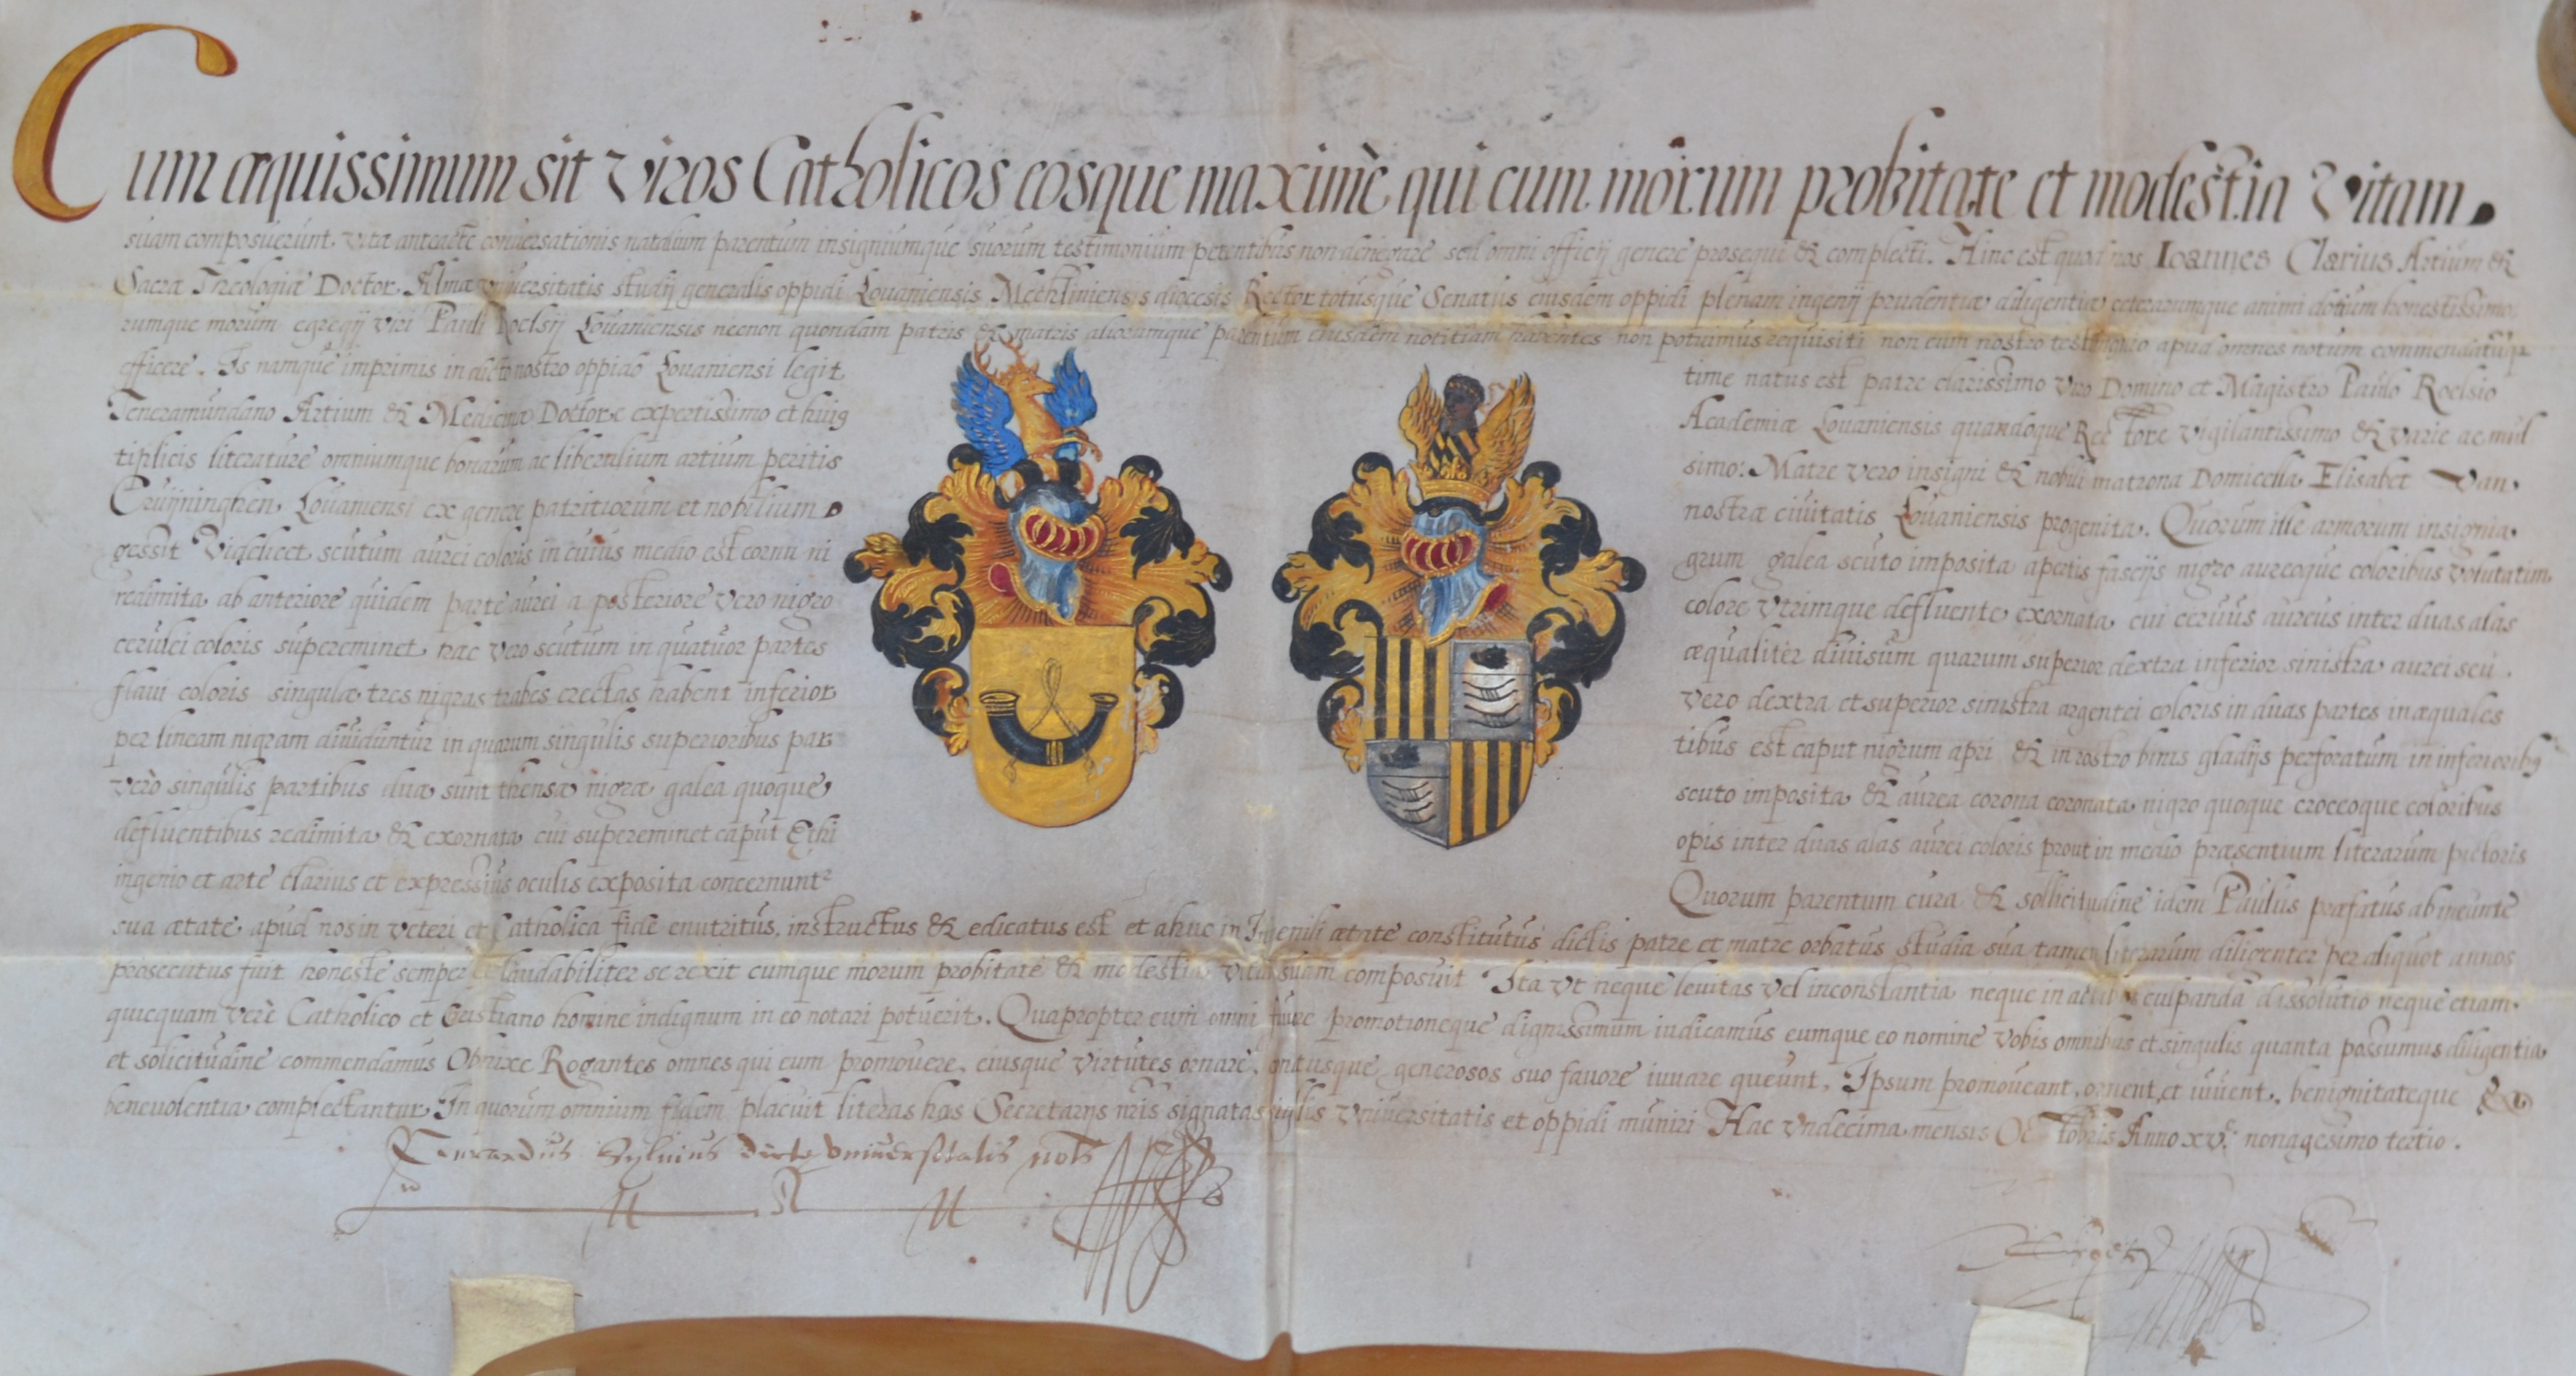 Cum æquissimum sit viros Catholicos eosque maximè qui cum morum probitate et modestia vitam
suam composuerunt, vitæ anteactæ conversationis natalium parentum insigniumque suorum testimonium petentibus non denegare sed omni officij genere prosequi & complecti. Hinc est quod nos Ioannes Clarius Artium &
Sacræ Theologiæ Doctor. Almæ universitatis studij generalis oppidi Lovaniensis Mechliniensis diocesis Rector totusque Senatus eiusdem oppidi plenam ingenij prudentiæ diligentiæ ceterarumque animi dotium honestissimo
rumque morum egregij viri Pauli Roelsij Lovaniensis necnon quondam patris & matris aliorumque parentum eiusdem notitiam habentes non potuimus requisiti non eum nostro testimonio apud omnes notum commendatumque
efficere. Is namque imprimis in dicto nostro oppido Lovaniensi legit time natus est patre clarissimo viro Domino et Magistro Paulo Roelsio
Teneramundano Artium & Medicinæ Doctore expertissimo et huius Academiæ Lovaniensis quandoque Rectore vigilantissimo & varie ac mul
tiplicis literature omniumque bonarum ac liberalium artium peritis simo: Matre vero insigni & nobili matrona Domicella Elisabet van
Cruijninghen Lovaniensi ex genere patritiorum et nobilium nostræ civitatis Lovaniensis progenita. Quorum ille armorum insignia
gessit Videlicet scutum aurei coloris in cuius medio est cornu ni grum galea scuto imposita apertis fascijs nigro aureoque coloribus volutatim
redimita ab anteriore quidem parte aurei a posteriore vero nigro colore utrimque defluente exornata cui cervus aureus inter duas alas
cerulei coloris supereminet hæc vero scutum in quatuor partes æqualiter divisum quarum superior dextra inferior sinistra aurei seu
flavi coloris singulæ tres nigras trabes erectas habent inferior vero dextra et superior sinistra argentei coloris in duas partes inæquales
per lineam nigram dividuntur in quarum singulis superioribus par tibus est caput nigrum apri & in rostro binis gladijs perforatum in inferioribus
vero singulis partibus duæ sunt thensæ nigræ galea quoque scuto imposita & aurea corona coronata nigro quoque croceoque coloribus
defluentibus redimita & exornata cui supereminet caput Ethi opis inter duas alas aurei coloris prout in medio præsentium literarum pictoris
ingenio et arte clarius et expressius oculis exposita concernuntur Quorum parentum cura & sollicitudine idem Paulus præfatus ab ineunte
sua ætate apud nos in veteri et Catholica fide enutritus, instructus & edicatus est et ahuc in Juvenili ætate constitutus dictis patre et matre orbatus studia sua tamen literarum diligenter per aliquot annos
prosecutus fuit honeste semper et laudabiliter se rexit eumque morum probitate & modestia vitæ suam composuit Ita ut neque levitas vel inconstantia neque in culpanda dissolutio neque etiam
quicquam verè Catholico et Cristiano homine indignum in eo notari potuerit. Quapropter eum omni favore promotioneque dignissimum iudicamus eumque eo nomine vobis omnibus et singulis quanta possumus diligentia
et solicitudine commendamus Obnixe Rogantes omnes qui eum promovere, eiusque virtutes ornare, generosos suo favore iuvare queunt, Ipsum promoveant, ornent, et iuvent, benignitateque &
benevolentia complectantur. In quorum omnium fidem placuit literas has Secretarijs nris signatas sigillis universitatis et oppidi muniri Hac undecima mensis Octobris Anno xvᶜ. nonagesimo tertio.
Gerardus Sylvius dicte universitatis nots